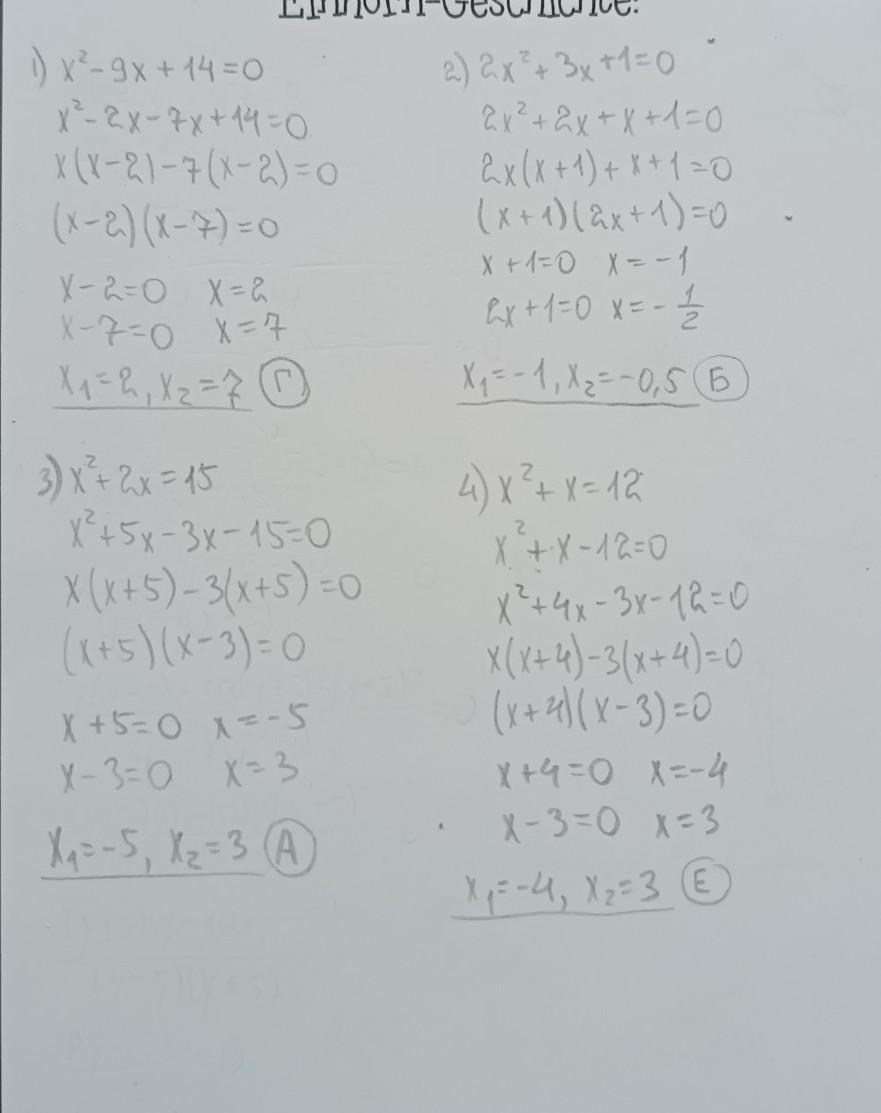 Einhorn-Geschichte:
1) x²-9x+14=0
x²-2x-7x+14=0
x(x-2)-7(x-2)=0
(x-2)(x-7)=0
x-2=0 x=2
x-7=0 x=7
x₁=2, x₂=7 Г
2) 2x²+3x+1=0
2x²+2x+x+1=0
2x(x+1)+x+1=0
(x+1)(2x+1)=0
x+1=0 x=-1
2x+1=0 x=-1/2
x₁=-1, x₂=-0,5 Б
3) x²+2x=15
x²+5x-3x-15=0
x(x+5)-3(x+5)=0
(x+5)(x-3)=0
x+5=0 x=-5
x-3=0 x=3
x₁=-5, x₂=3 А
4) x²+x=12
x²+x-12=0
x²+4x-3x-12=0
x(x+4)-3(x+4)=0
(x+4)(x-3)=0
x+4=0 x=-4
x-3=0 x=3
x₁=-4, x₂=3 Е